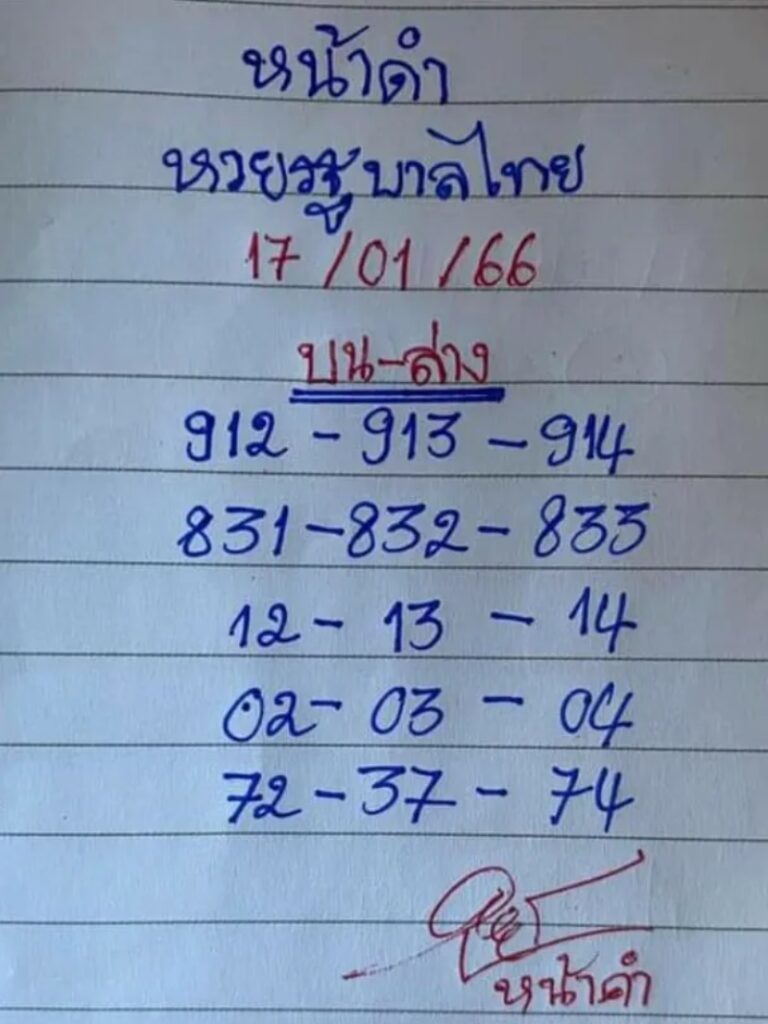 หน้าดำ
หวยรัฐบาลไทย
17/01/66
บน-ล่าง
912 - 913 - 914
831 - 832 - 833
12 - 13 - 14
02 - 03 - 04
72 - 37 - 74
หน้าดำ